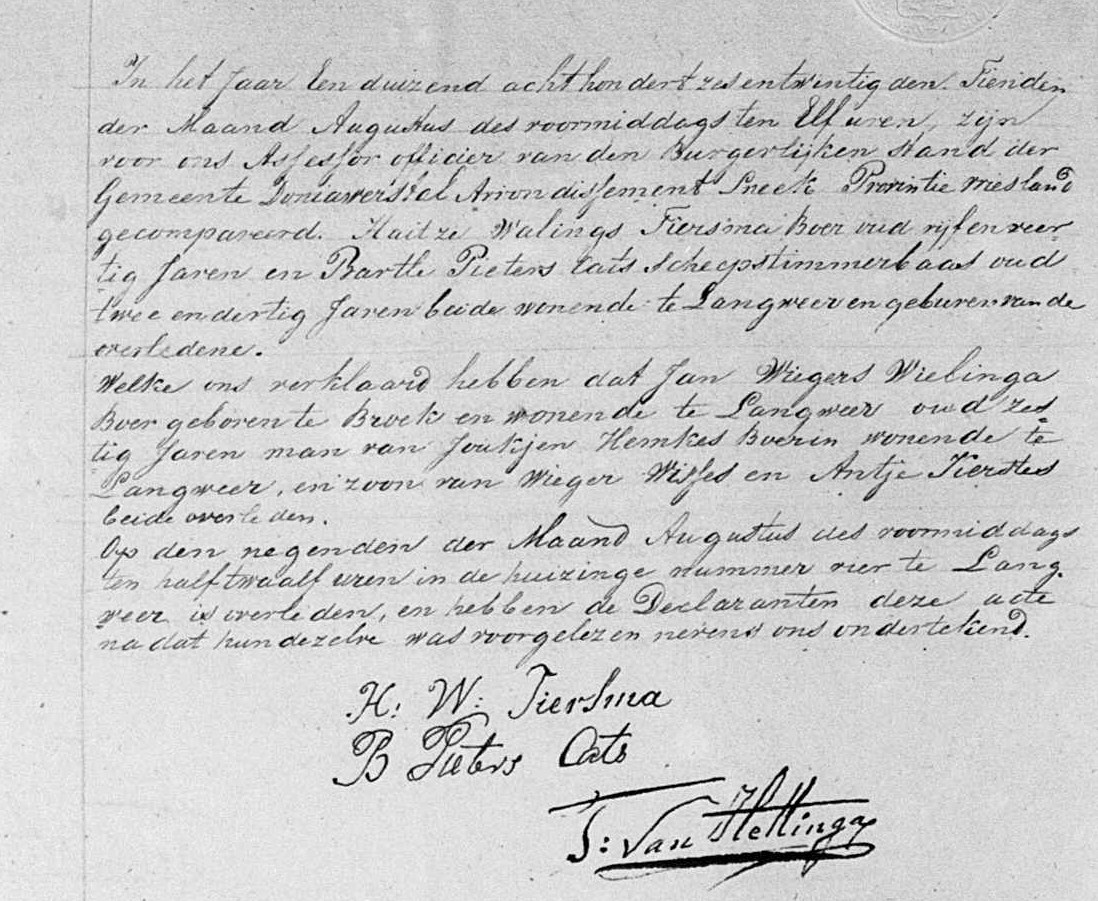 In het Jaar Een duizend acht hondert zes entwintig den Tienden
der Maand Augustus des voormiddags ten Elf uren, zijn
voor ons Assessor officier van den Burgerlijken stand der
Gemeente Doniawerstal Arrondissement Sneek Provintie vriesland
gecompareerd. Haitze Walings Tiersma Boer oud vyf en veer
tig Jaren en Bartle Pieters Cats Scheepstimmerbaas oud
twee en dertig Jaren beide wonende te Langweer en geburen van de
overledene.
Welke ons verklaard hebben dat Jan Wiegers Wielinga
Boer geboren te Broek en wonende te Langweer oud zes
tig Jaren man van Joukjen Hemkes Boerin wonende te
Langweer, en zoon van Wieger Wisses en Antje
beide overleden.
Op den negenden der Maand Augustus des voormiddags
ten half twaalf uren in de huizinge nummer vier te Lang
weer is overleden, en hebben de Declaranten deze acte
na dat hun dezelve was voorgelezen nevens ons ondertekend.
H: W: Tiersma
B Pieters Cats
S: Van Hettinga